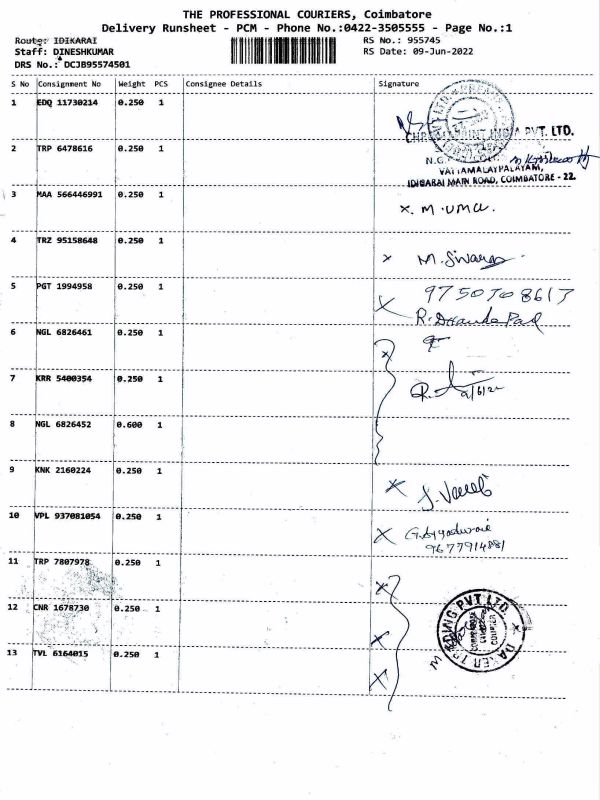 THE PROFESSIONAL COURIERS, Coimbatore
Delivery Runsheet - PCM - Phone No.:0422-3505555 - Page No.:1
Route: IDIKARAI RS No.: 955745
Staff: DINESHKUMAR RS Date: 09-Jun-2022
DRS No.: DCJB95574501
S No Consignment No Weight PCS Consignee Details Signature
1 EDQ 11730214 0.250 1
PVT. LTD.
2 TRP 6478616 0.250 1
VATTAMALAYPALAYAM,
IDIGARAI MAIN ROAD, COIMBATORE - 22.
3 MAA 566446991 0.250 1
x. M. uma.
4 TRZ 95158648 0.250 1
x M. Siwaraj
5 PGT 1994958 0.250 1
x 9750708617
6 NGL 6826461 0.250 1
7 KRR 5400354 0.250 1
8 NGL 6826452 0.600 1
9 KNK 2160224 0.250 1
10 VPL 937081054 0.250 1
9677914881
11 TRP 7807978 0.250 1
12 CNR 1678730 0.250 1
13 TVL 6164015 0.250 1